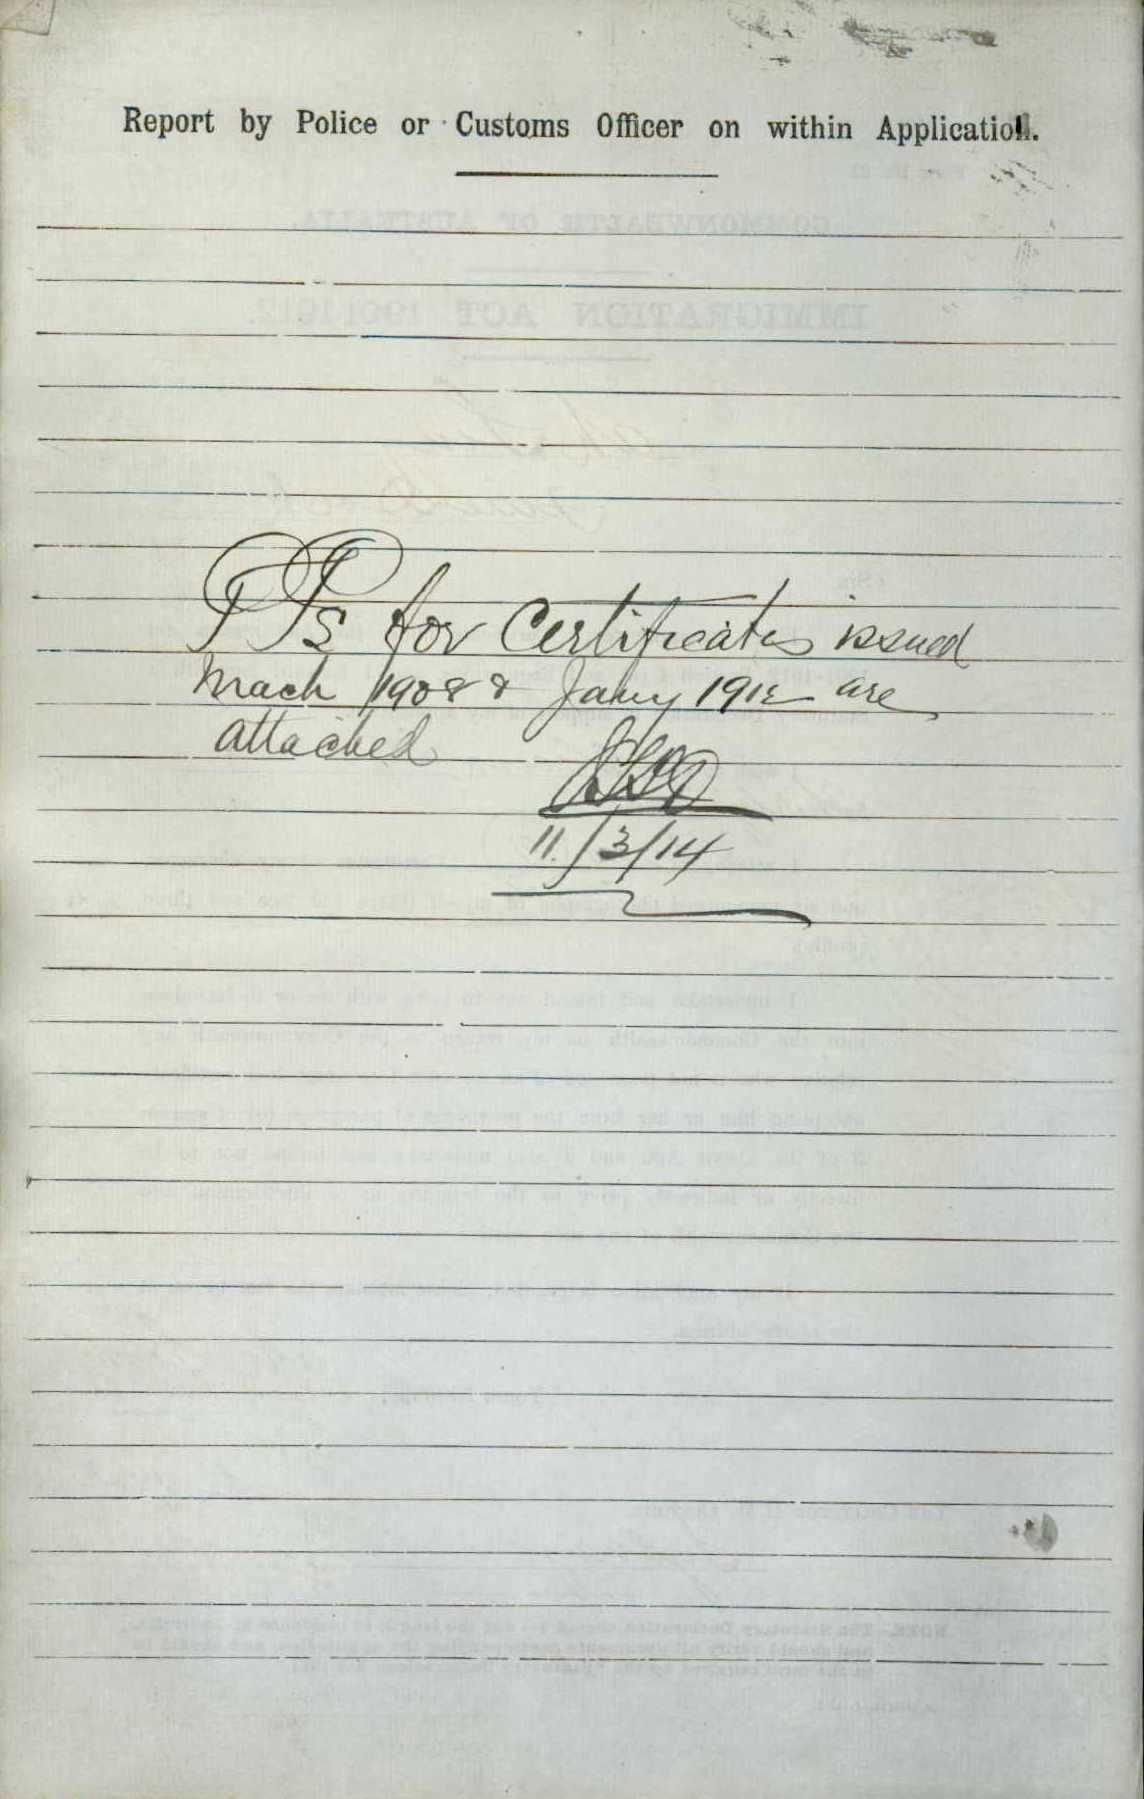 Report by Police or Customs Officer on within Application.
PPs for Certificates issued
Mach 1908 & Jany 1912 are
attached
11/3/14